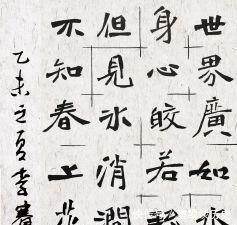 世界廣如
身心皎若
但見冰消澗
不知春上花
乙未之夏李